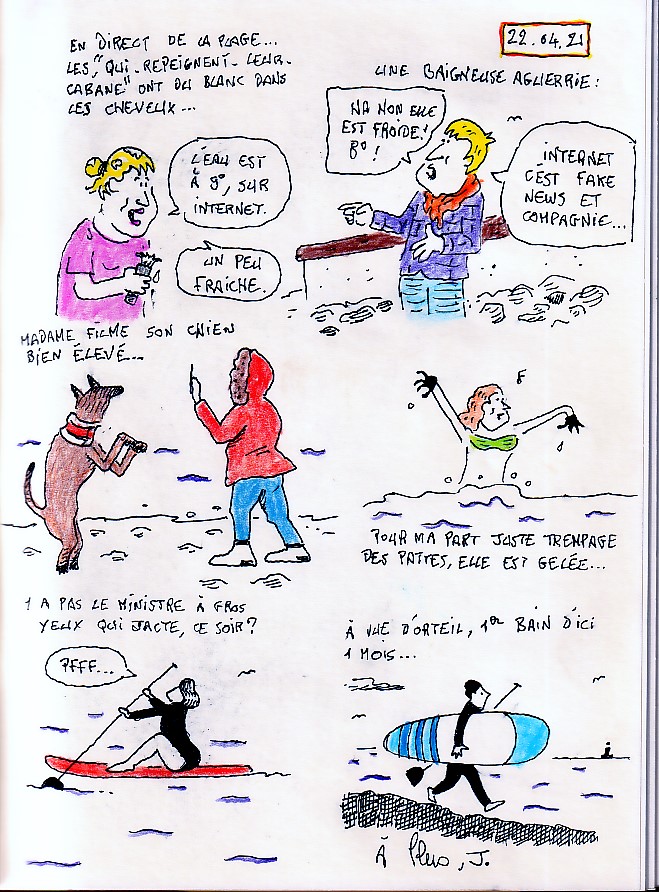 22.04.21
EN DIRECT DE LA PLAGE...
LES "QUI-REPEIGNENT-LEUR-
CABANE" ONT DU BLANC DANS
LES CHEVEUX...
L'EAU EST
À 9°, SUR
INTERNET.
UN PEU
FRAICHE.
UNE BAIGNEUSE AGUERRIE :
NA NON ELLE
EST FROIDE!
8° !
INTERNET
C'EST FAKE
NEWS ET
COMPAGNIE...
MADAME FILME SON CHIEN
BIEN ÉLEVÉ...
POUR MA PART JUSTE TREMPAGE
DES PATTES, ELLE EST GELÉE...
Y A PAS LE MINISTRE À GROS
YEUX QUI JACTE, CE SOIR?
PFFF...
À VUE D'ORTEIL, 1er BAIN D'ICI
1 MOIS...
À Plus, J.